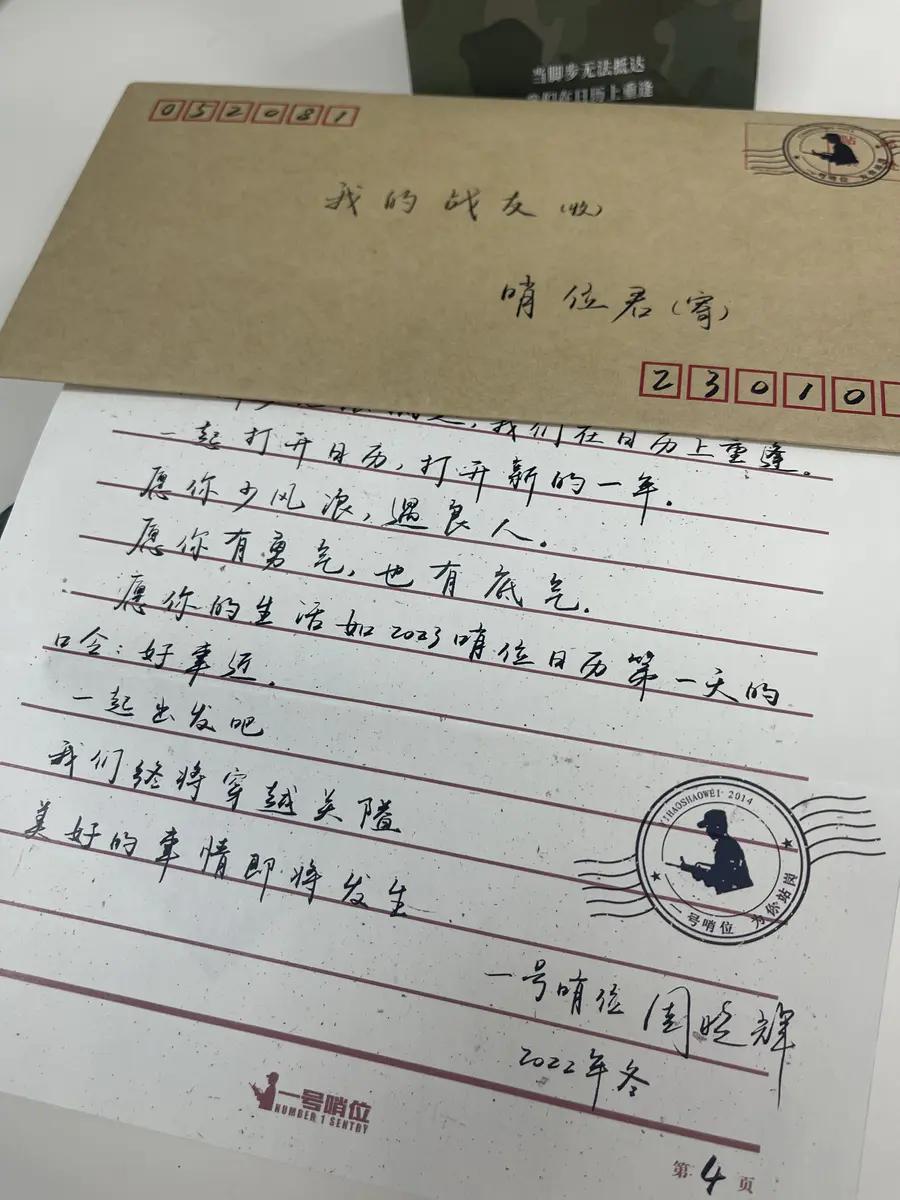 当脚步无法抵达
在日历上重逢
052081
我的战友(收)
哨位君(寄)
23010
我们在日历上重逢。
一起打开日历，打开新的一年。
愿你少风浪，遇良人。
愿你有勇气，也有底气。
愿你的生活如2023哨位日历第一天的
口令：好事近。
一起出发吧
我们终将穿越关隘
美好的事情即将发生
YIHAOSHAOWEI 2014
一号哨位 为你站岗
一号哨位 周晓辉
2022年冬
一号哨位
NUMBER 1 SENTRY
第4页